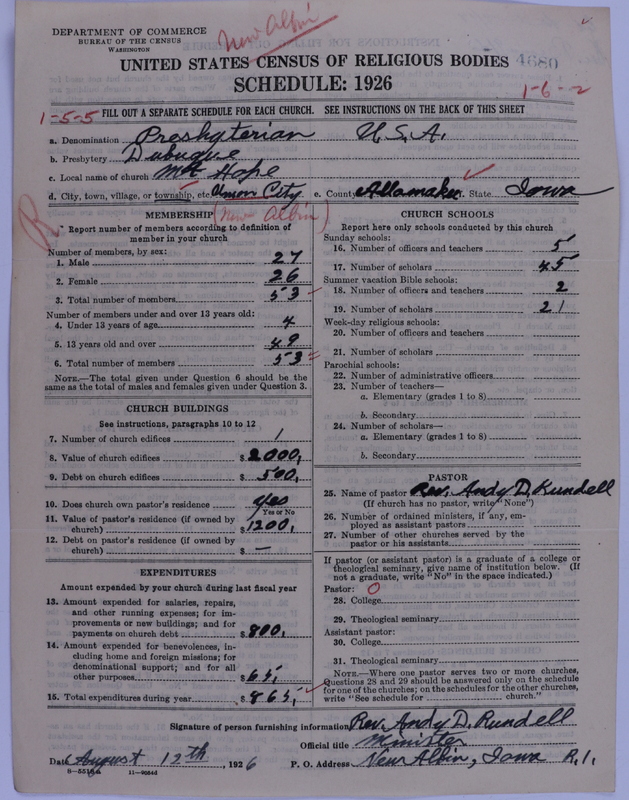 DEPARTMENT OF COMMERCE
BUREAU OF THE CENSUS
WASHINGTON
New Albin
4680
UNITED STATES CENSUS OF RELIGIOUS BODIES
SCHEDULE: 1926
1-6--2
1-5-5
FILL OUT A SEPARATE SCHEDULE FOR EACH CHURCH. SEE INSTRUCTIONS ON THE BACK OF THIS SHEET
a. Denomination Presbyterian U.S.A.
b. Presbytery Dubuque
c. Local name of church Mt Hope
d. City, town, village, or township, etc. Union City e. County Allamakee f. State Iowa
(New Albin)
R
MEMBERSHIP
Report number of members according to definition of member in your church
Number of members, by sex:
1. Male 27
2. Female 26
3. Total number of members 53
Number of members under and over 13 years old:
4. Under 13 years of age 4
5. 13 years old and over 49
6. Total number of members 53
NOTE.—The total given under Question 6 should be the
same as the total of males and females given under Question 3.
CHURCH BUILDINGS
See instructions, paragraphs 10 to 12
7. Number of church edifices 1
8. Value of church edifices $2000,
9. Debt on church edifices $500,
10. Does church own pastor's residence yes
Yes or No
11. Value of pastor's residence (if owned by
church) $1200,
12. Debt on pastor's residence (if owned by
church) $ —
EXPENDITURES
Amount expended by your church during last fiscal year
13. Amount expended for salaries, repairs,
and other running expenses; for im-
provements or new buildings; and for
payments on church debt $800,
14. Amount expended for benevolences, in-
cluding home and foreign missions; for
denominational support; and for all
other purposes $65,
15. Total expenditures during year $865,
CHURCH SCHOOLS
Report here only schools conducted by this church
Sunday schools:
16. Number of officers and teachers 5
17. Number of scholars 45
Summer vacation Bible schools:
18. Number of officers and teachers 2
19. Number of scholars 21
Week-day religious schools:
20. Number of officers and teachers
21. Number of scholars
Parochial schools:
22. Number of administrative officers
23. Number of teachers—
a. Elementary (grades 1 to 8)
b. Secondary
24. Number of scholars—
a. Elementary (grades 1 to 8)
b. Secondary
PASTOR
25. Name of pastor Rev. Andy D. Rundell
(If church has no pastor, write "None")
26. Number of ordained ministers, if any, em-
ployed as assistant pastors
27. Number of other churches served by the
pastor or his assistants
If pastor (or assistant pastor) is a graduate of a college or
theological seminary, give name of institution below. (If
not a graduate, write "No" in the space indicated.)
Pastor: O
28. College
29. Theological seminary
Assistant pastor:
30. College
31. Theological seminary
NOTE.—Where one pastor serves two or more churches,
Questions 28 and 29 should be answered only on the schedule
for one of the churches; on the schedules for the other churches,
write "See schedule for church."
Signature of person furnishing information Rev. Andy D. Rundell
Official title Minister
Date August 12th, 1926 P. O. Address New Albin, Iowa R.1.